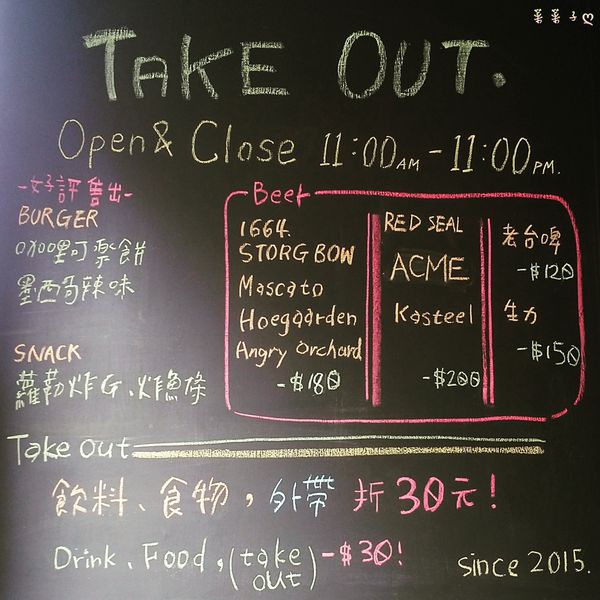 葉葉子
TAKE OUT.
Open & Close 11:00 AM - 11:00 PM.
-好評售出-
BURGER
咖哩可樂餅
墨西哥辣味
SNACK
蘿勒炸G、炸魚條
Beer
1664.
STORGBOW
Mascato
Hoegaarden
Angry Orchard
-$180
RED SEAL
ACME
Kasteel
-$200
老台啤
-$120
生力
-$150
Take out
飲料、食物，外帶 折30元!
Drink、Food,(take out)-$30!
since 2015.